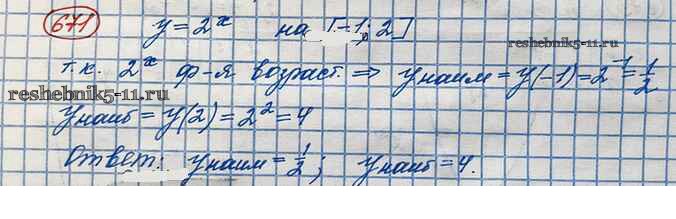 671 y = 2^x на [-1; 2]
reshebnik5-11.ru
т.к. 2^x ф-я возраст. ⇒ y наим = y(-1) = 2^-1 = 1/2
reshebnik5-11.ru
y наиб = y(2) = 2^2 = 4
Ответ: y наим = 1/2; y наиб = 4.